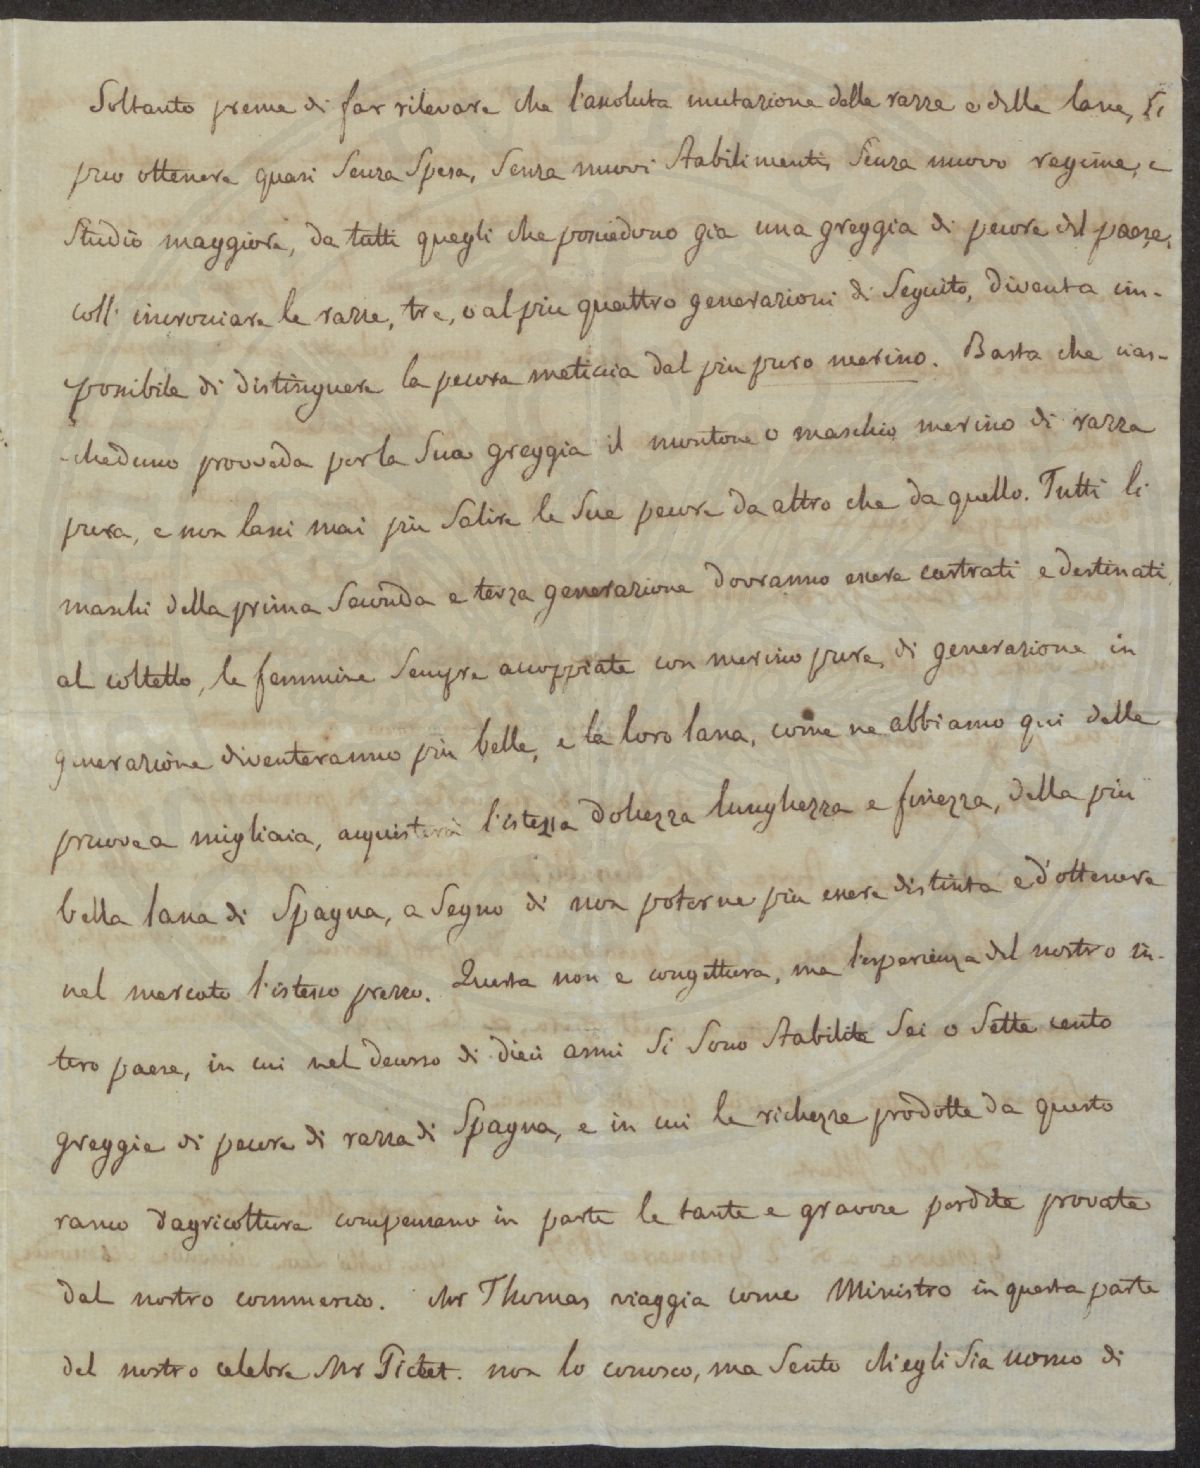 Soltanto preme di far rilevare che l'assoluta mutazione delle razze e delle lane, si
puo ottenere quasi senza spesa, senza nuovi stabilimenti, senza nuovo regime, e
studio maggiore, da tutti quegli che possiedono gia una greggia di pecore del paese,
coll' incrociare le razze, tre, o al piu quattro generazioni di seguito, diventa im-
possibile di distinguere la pecora meticcia dal piu puro merino. Basta che cias-
-cheduno provveda per la sua greggia il montone o maschio merino di razza
pura, e non lasci mai piu salire le sue pecore da altro che da quello. Tutti li
maschi della prima seconda e terza generazione dovranno essere castrati e destinati
al coltello, le femmine sempre accoppiate con merino puro, di generazione in
generazione diventeranno piu belle, e la loro lana, come ne abbiamo qui delle
pruove a migliaia, acquisterà l'istessa dolcezza lunghezza e finezza, della piu
bella lana di Spagna, a segno di non poterne piu essere distinta e d'ottenere
nel mercato l'istesso prezzo. Questa non e congettura, ma l'esperienza del nostro in-
tero paese, in cui nel decorso di dieci anni si sono stabilite sei o sette cento
greggie di pecore di razza di Spagna, e in cui le richezze prodotte da questo
ramo d'agricoltura compensano in parte le tante e gravose perdite provate
dal nostro commercio. Mr Thomas viaggia come Ministro in questa parte
del nostro celebre Mr Pictet. non lo conosco, ma sento ch'egli sia uomo di